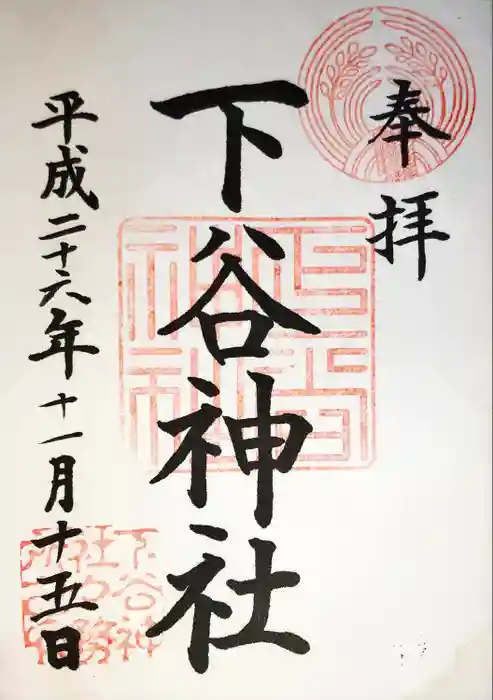 奉拝
下谷神社
平成二十六年十一月十五日
下谷神
社